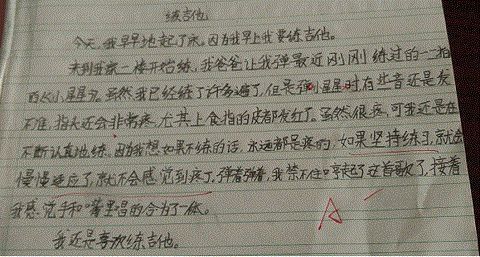 练吉他
今天,我早早地起了床。因为我早上我要练吉他。
来到我家一楼开始练,我爸爸让我弹最近刚刚练过的一二拍
的长小星星了。虽然我已经练了许多遍了,但是弹小星星时,有些音还是发
不准,指头还会非常疼,尤其上食指的皮都发红了。虽然很疼,可我还是在
不断认真地练。因为我想如果不练的话,永远都是疼的,如果坚持练习,就会
慢慢适应了,就不会感觉到疼了,弹着弹着,我禁不住哼起了这首歌了,接着
我感觉手和嘴里唱的合为了一体。
我还是喜欢练吉他。
A-